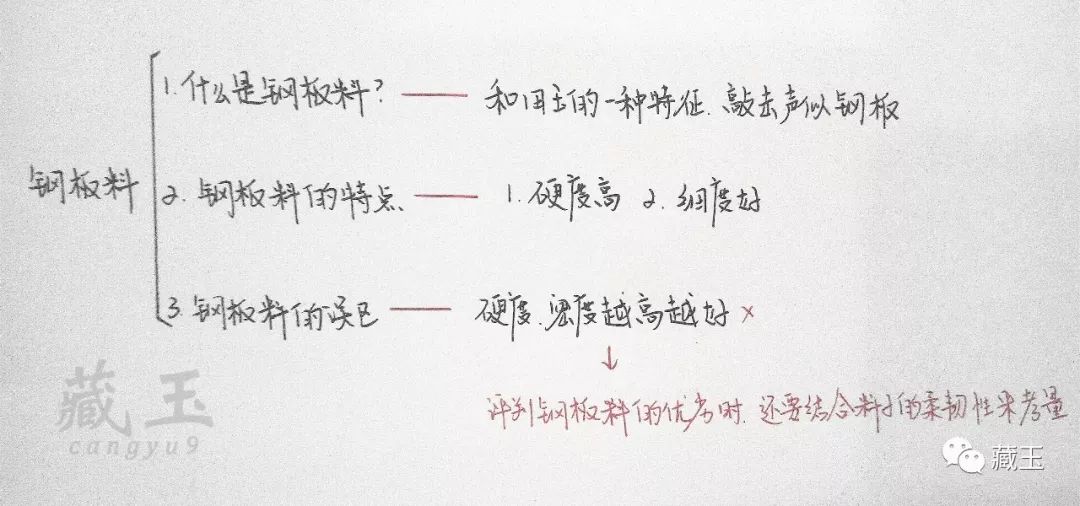 钢板料
1. 什么是钢板料? —— 和田玉的一种特征、敲击声似钢板
2. 钢板料的特点 —— 1. 硬度高 2. 细度好
3. 钢板料的误区 —— 硬度、密度越高越好 ×
↓
评判钢板料的优劣时、还要结合料子的柔韧性来考量
藏玉
cangyu9
藏玉